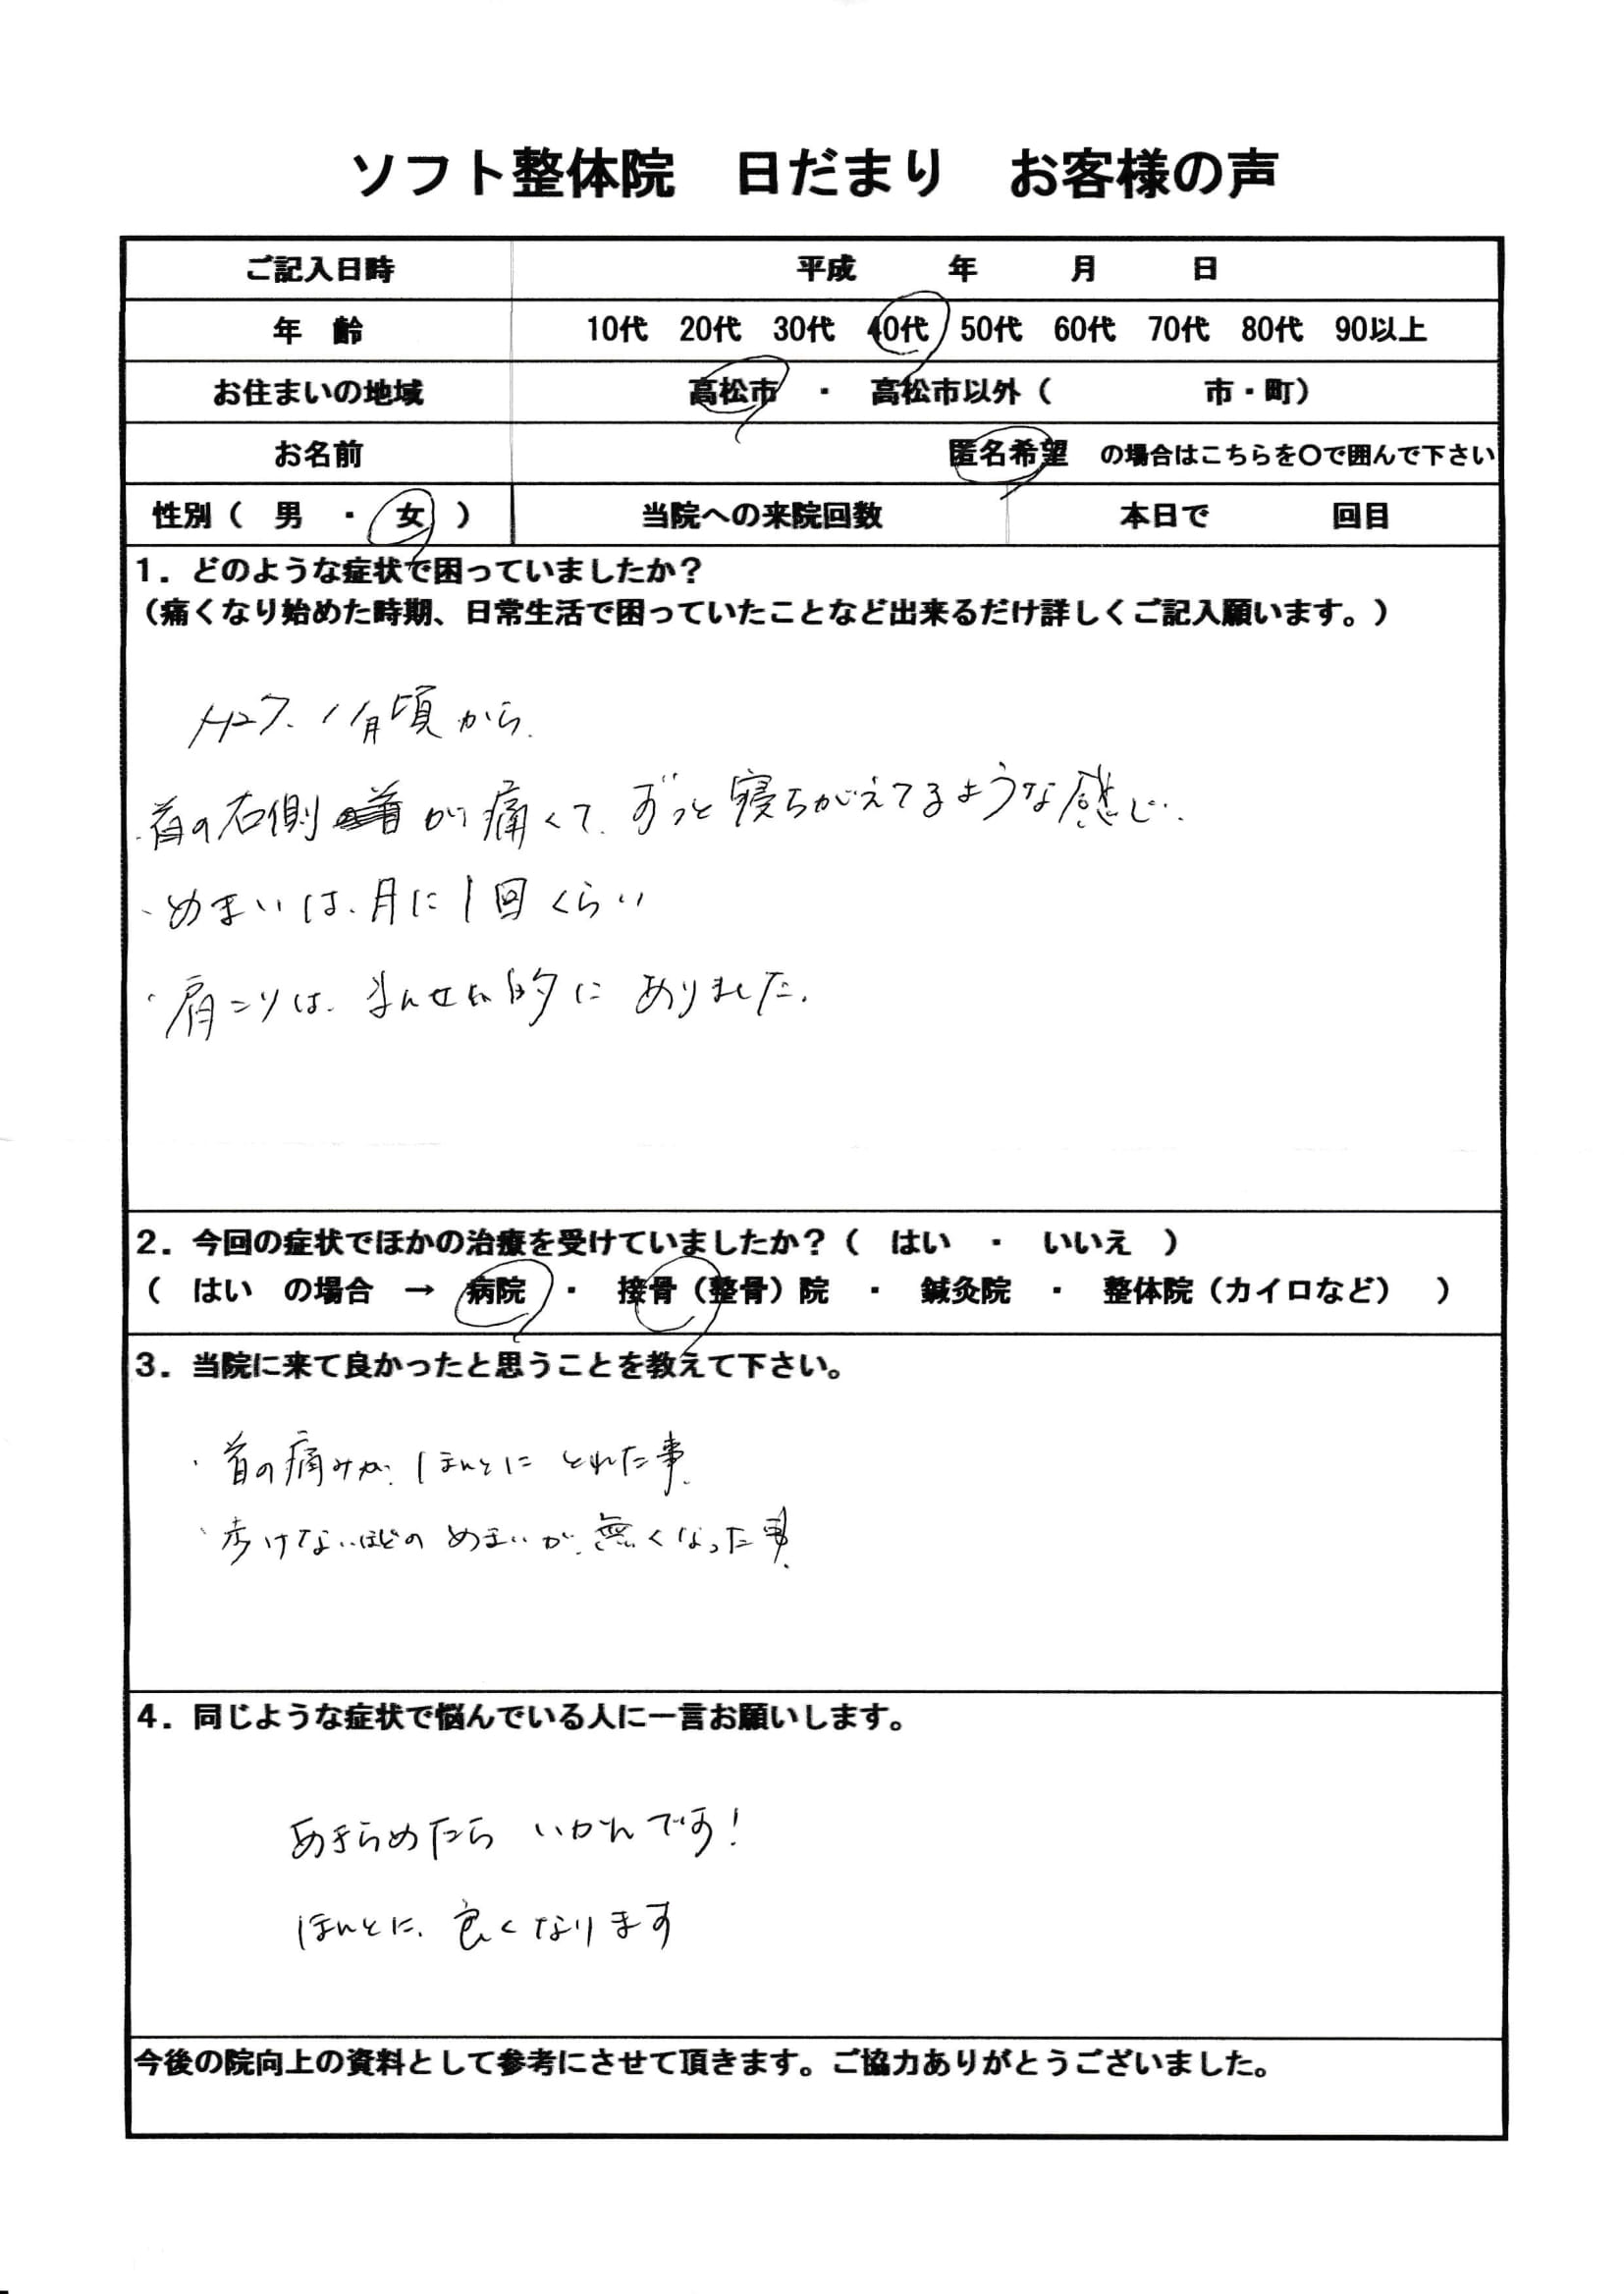 ソフト整体院 日だまり お客様の声
ご記入日時 平成 年 月 日
年 齢 10代 20代 30代 40代 50代 60代 70代 80代 90以上
お住まいの地域 高松市 ・ 高松市以外( 市・町)
お名前 匿名希望 の場合はこちらを〇で囲んで下さい
性別( 男 ・ 女 ) 当院への来院回数 本日で 回目
1.どのような症状で困っていましたか?
(痛くなり始めた時期、日常生活で困っていたことなど出来るだけ詳しくご記入願います。)
H27. 11月頃から.
・首の右側が痛くて、ずっと寝ちがえてるような感じ.
・めまいは、月に1回くらい
・肩コリは、まんせい的にありました.
2.今回の症状でほかの治療を受けていましたか?( はい ・ いいえ )
( はい の場合 → 病院 ・ 接骨(整骨)院 ・ 鍼灸院 ・ 整体院(カイロなど) )
3.当院に来て良かったと思うことを教えて下さい。
・首の痛みが、ほんとに とれた事.
・歩けないほどの めまいが、無くなった事.
4.同じような症状で悩んでいる人に一言お願いします。
あきらめたら いかんです!
ほんとに、良くなります
今後の院向上の資料として参考にさせて頂きます。ご協力ありがとうございました。